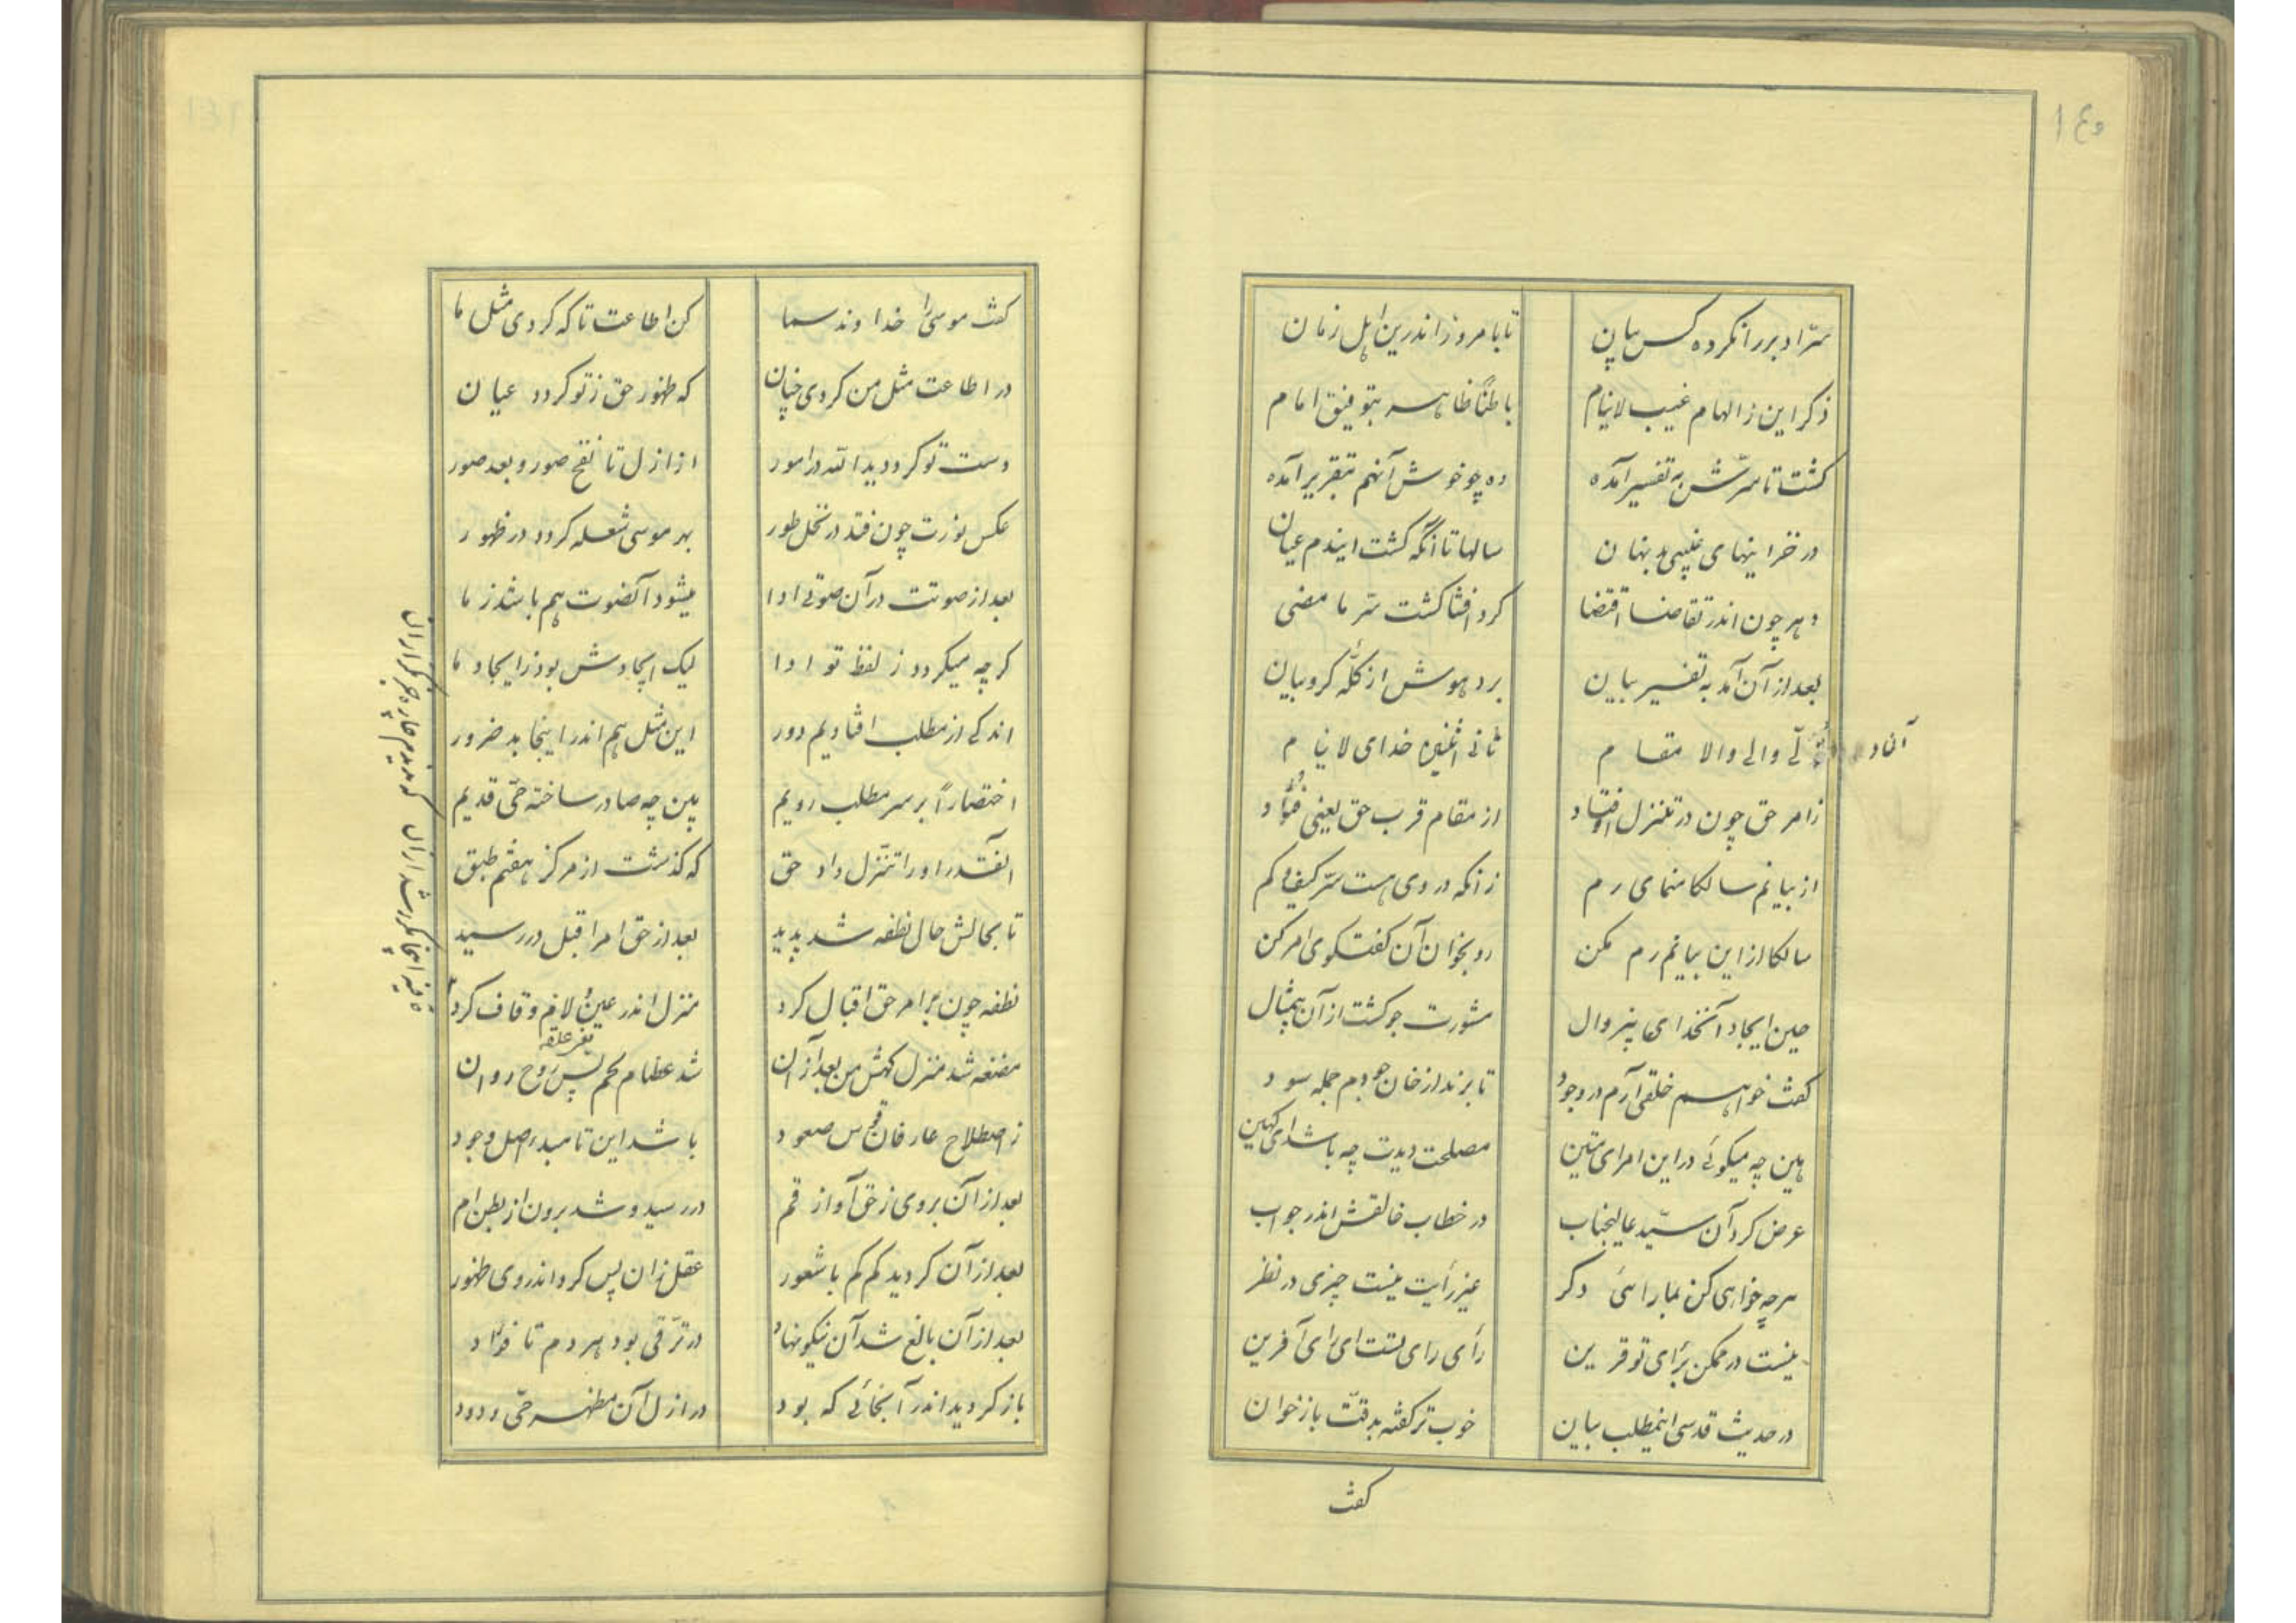 ۱۴۰
سرّ ادبر را نکرده کس بیان
تا با مروز اندرین اهل زمان
ذکر این ز الهام غیب لاینام
باطناً ظاهر بتوفیق امام
کشت تا سرّش به تفسیر آمده
وه چو خوش آنهم بتقریر آمده
در خزاینهای غیبی بد نهان
سالها تا آنکه کشت ایندم عیان
دهر چون اندر تقاضا اقتضا
کرد افشا کشت سرّ ما مضی
بعد از آن آمد به تفسیر بیان
برد هوش از کلّه کروبیان
والی والا مقام
خدای لاینام
زامر حق چون در تنزل اوفتاد
از مقام قرب حق یعنی فؤاد
از بیانم سالکا منمای رم
زانکه در وی هست سرّ کیف و کم
سالکا از این بیانم رم مکن
رو بخوان آن کفتکوی امر کن
حین ایجاد آنخدای بیزوال
مشورت جو کشت از آن بیمثال
کفت خواهم خلقی آرم در وجود
تا برند از خان جودم جمله سود
هین چه میکوئی در این امر ای متین
مصلحت دیدت چه باشد ای کهین
عرض کرد آن سیّد عالیجناب
در خطاب خالقش اندر جواب
هر چه خواهی کن بما رائی دکر
غیر رأیت نیست چیزی در نظر
نیست در ممکن برأی تو قرین
رأی رای تست ای رای آفرین
در حدیث قدسی اینمطلب بیان
خوب تر کفته بدقّت باز خوان
کفت
کفت موسی را خداوند سما
کن اطاعت تا که کردی مثل ما
در اطاعت مثل من کردی چنان
که ظهور حق ز تو کردد عیان
دست تو کردد یدالله در امور
از ازل تا نفخ صور و بعد صور
عکس نورت چون فتد در نخل طور
بهر موسی شعله کردد در ظهور
بعد از صوتت در آن صوتی ادا
میشود آنصوت هم باشد ز ما
کرچه میکردد ز لفظ تو ادا
لیک ایجادش بود ز ایجاد ما
اندکی از مطلب افتادیم دور
این مثل هم اندر اینجا بد ضرور
اختصاراً بر سر مطلب رویم
بین چه صادر ساخته حیّ قدیم
آنقدر او را تنزّل داد حق
که کذشت از مرکز هفتم طبق
تا بحالش حال نطفه شد پدید
بعد از حق امر اقبل در رسید
نطفه چون بر امر حق اقبال کرد
منزل اندر عین و لام و قاف کرد
یعنی علقه
مضغه شد منزل کهش من بعد از آن
شد عظام لحم پس روح روان
ز اصطلاح عارفان قوس صعود
باشد این تا مبدء اصل وجود
بعد از آن بر وی ز حق آواز قم
در رسید و شد برون از بطن ام
بعد از آن کردید کم کم با شعور
عقل زان پس کرد اندر وی ظهور
بعد از آن بالغ شد آن نیکو نهاد
در ترّقی بود هر دم تا فؤاد
باز کردید اندر آنجائی که بود
در ازل آن مظهر حیّ ودود